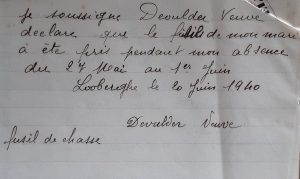 Je soussigné Devulder Veuve
declare que le fusil de mon mari
à été pris pendant mon absence
du 27 Mai au 1er Juin
Looberghe le 20 Juin 1940
Devulder Veuve
fusil de chasse